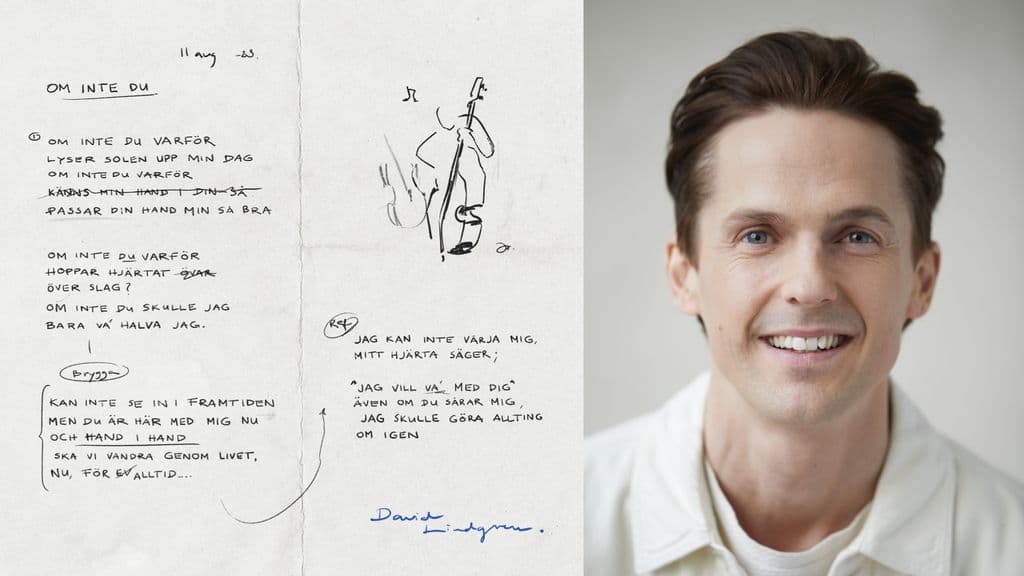 11 aug -23.
OM INTE DU
① OM INTE DU VARFÖR
LYSER SOLEN UPP MIN DAG
OM INTE DU VARFÖR
KÄNNS MIN HAND I DIN SÅ
PASSAR DIN HAND MIN SÅ BRA
OM INTE DU VARFÖR
HOPPAR HJÄRTAT ÖVAR
ÖVER SLAG?
OM INTE DU SKULLE JAG
BARA VA' HALVA JAG.
Brygga
KAN INTE SE IN I FRAMTIDEN
MEN DU ÄR HÄR MED MIG NU
OCH HAND I HAND
SKA VI VANDRA GENOM LIVET,
NU, FÖR EV ALLTID....
Ref
JAG KAN INTE VÄRJA MIG,
MITT HJÄRTA SÄGER;
"JAG VILL VA' MED DIG"
ÄVEN OM DU SÅRAR MIG,
JAG SKULLE GÖRA ALLTING
OM IGEN
David
Lindgren.